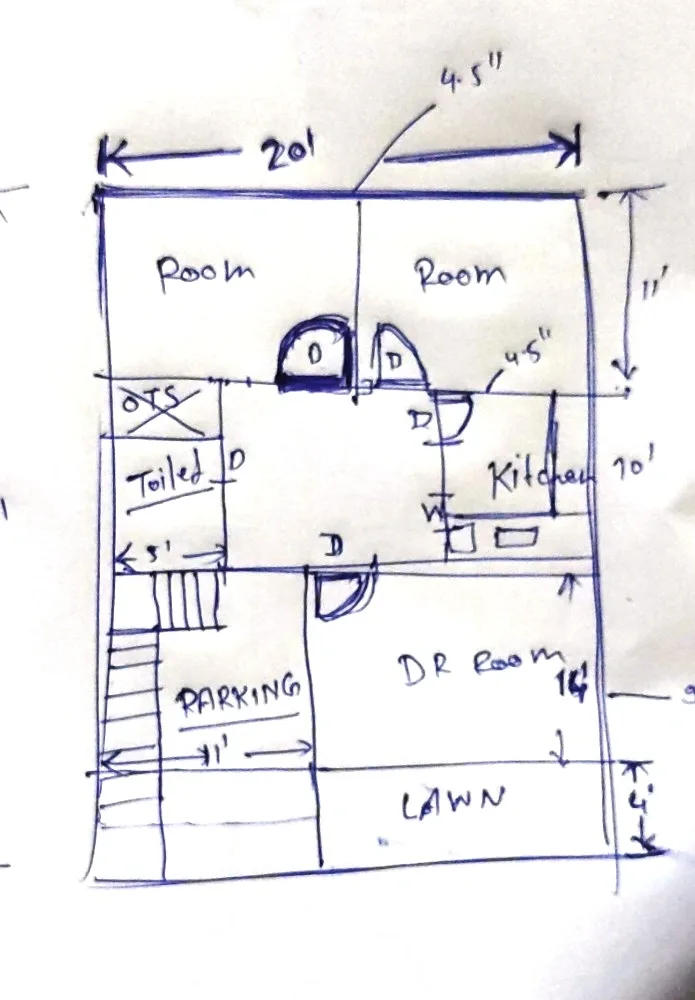 4.5"
20'
Room
Room
11'
D
D
4.5"
OTS
D
Toiled
D
Kitchen
10'
W
5'
D
DR ROOM
PARKING
11'
4'
LAWN